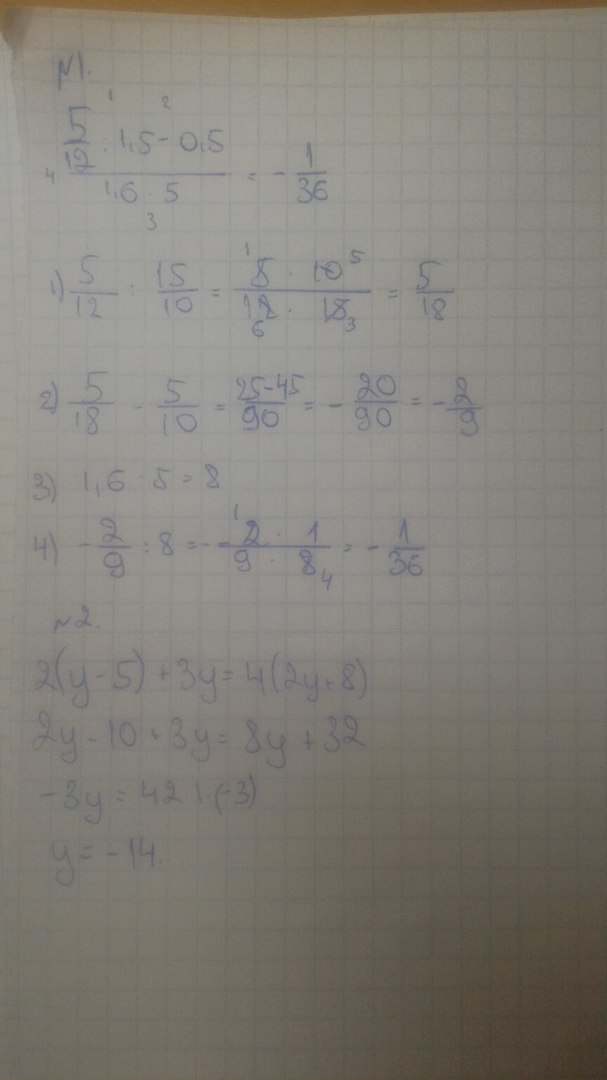 №1.
1 2
4 5/12 : 1,5 - 0,5 / 1,6 · 5 = - 1/36
3
1) 5/12 : 15/10 = 5 · 10 / 12 · 15 = 5/18
2) 5/18 - 5/10 = 25-45/90 = - 20/90 = - 2/9
3) 1,6 · 5 = 8
4) - 2/9 : 8 = - 2 · 1 / 9 · 8 = - 1/36
№2.
2(y - 5) + 3y = 4(2y + 8)
2y - 10 + 3y = 8y + 32
-3y = 42 | : (-3)
y = -14.